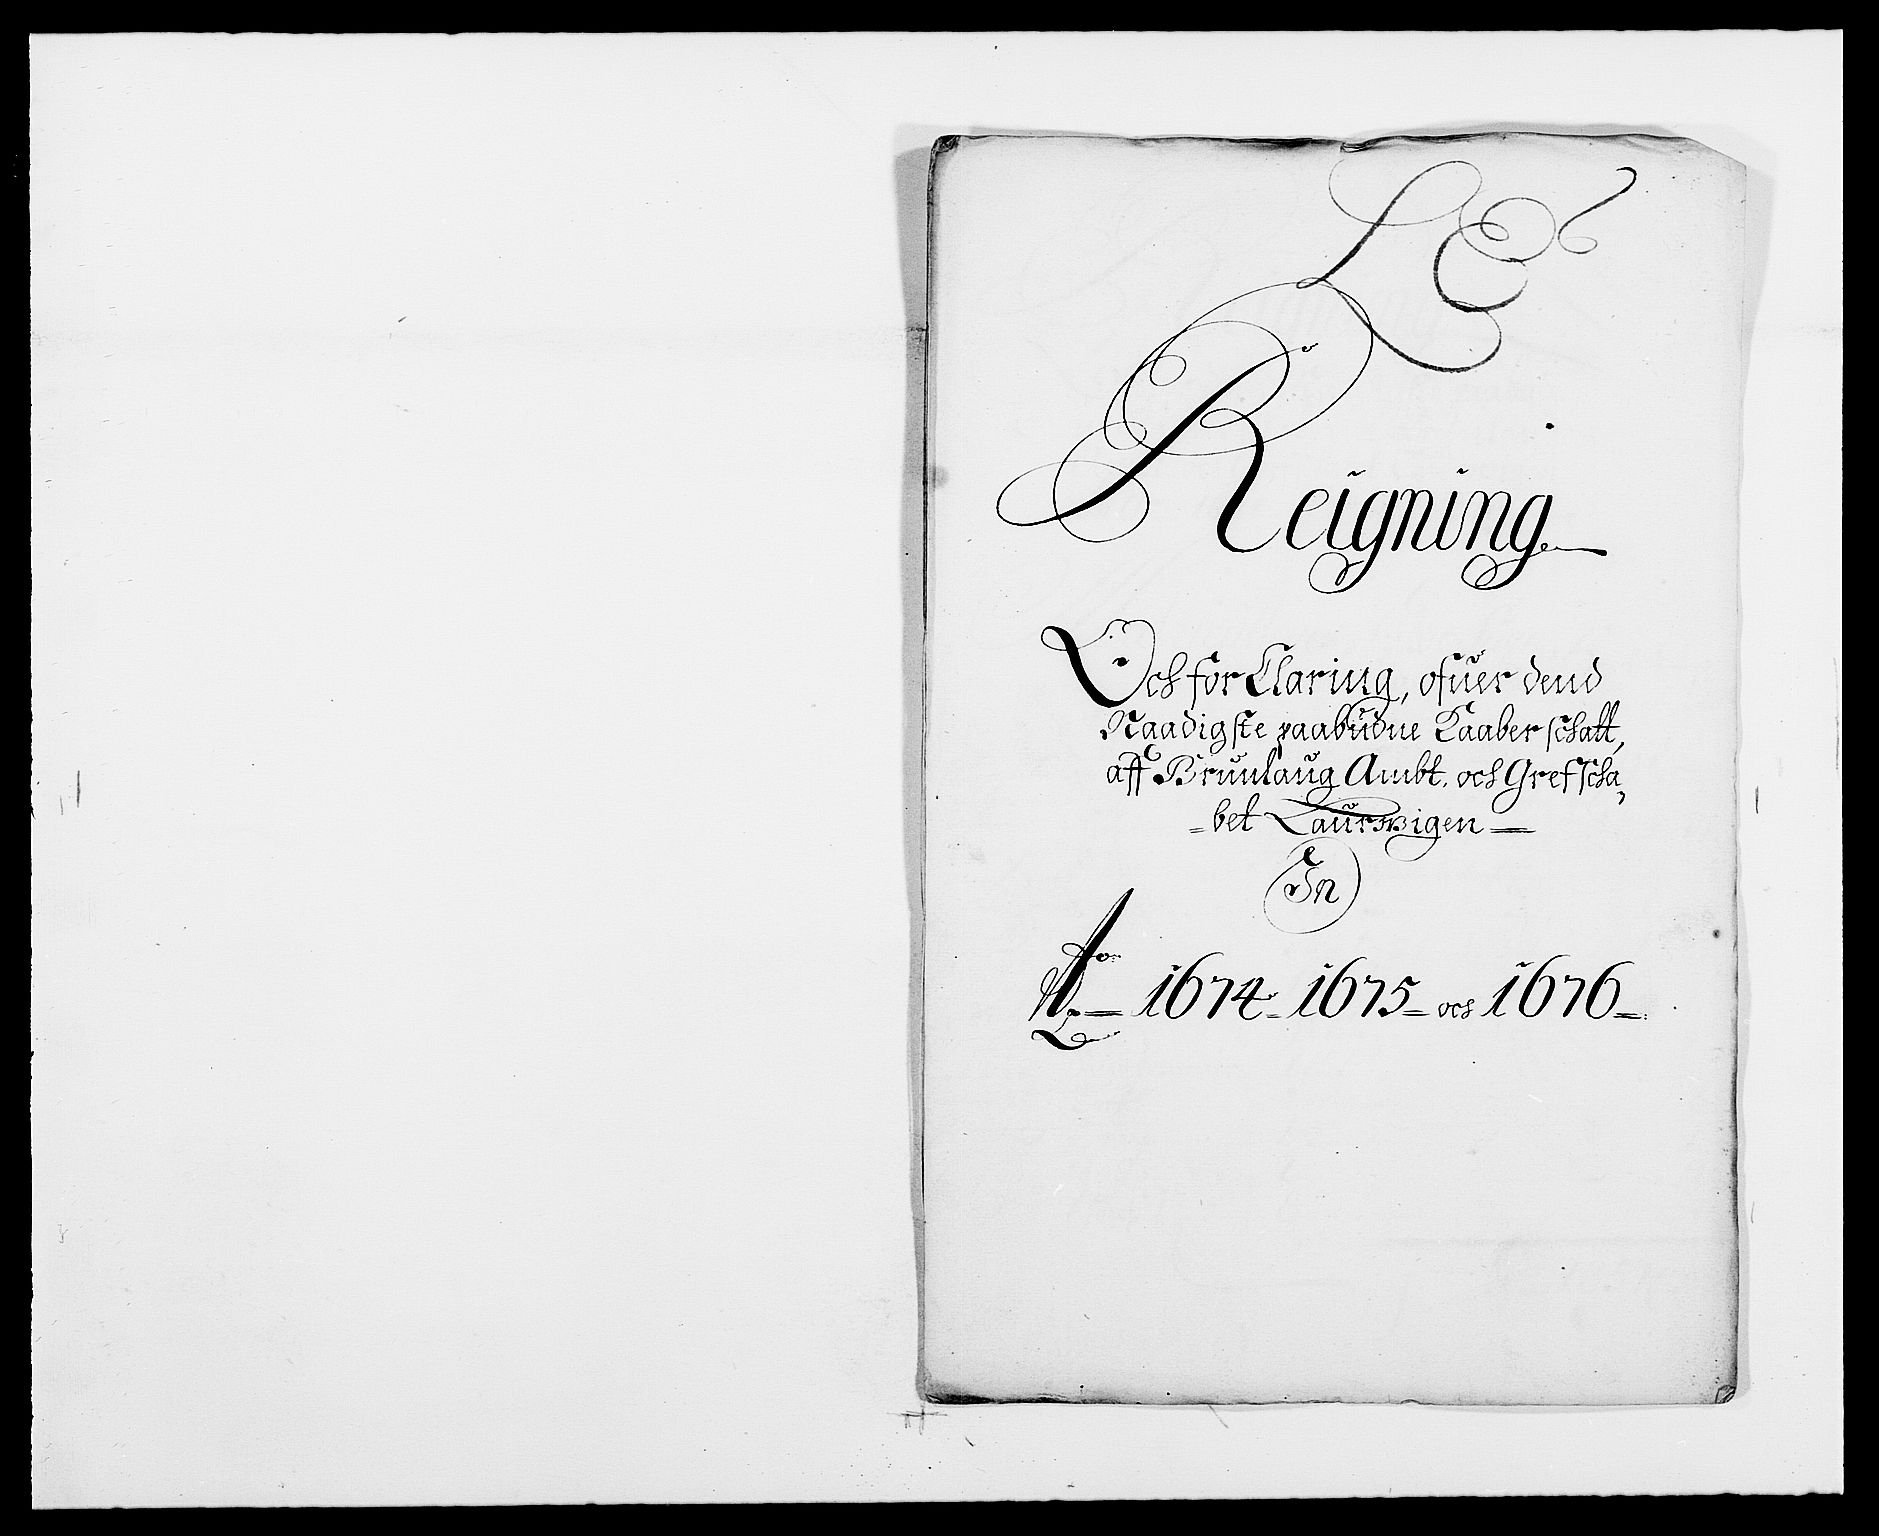 LE
Reigning
Och for Claring, ofuer dend
Naadigste paabudne Kaaber schatt,
aff Brunlaug Ambt. och Grefscha,
=bet Laurwigen
In
A̅o 1674 = 1675 = och 1676 =